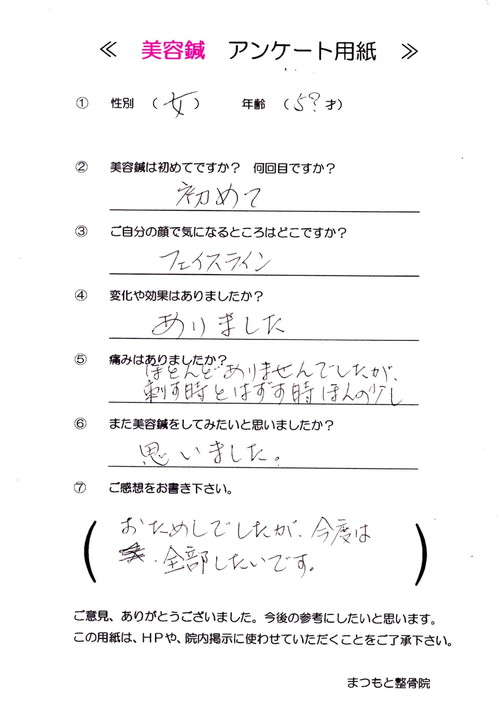 ≪ 美容鍼 アンケート用紙 ≫
① 性別 （女） 年齢 （5？才）
② 美容鍼は初めてですか？ 何回目ですか？
初めて
③ ご自分の顔で気になるところはどこですか？
フェイスライン
④ 変化や効果はありましたか？
ありました
⑤ 痛みはありましたか？
ほとんどありませんでしたが、
刺す時とはずす時ほんの少し
⑥ また美容鍼をしてみたいと思いましたか？
思いました。
⑦ ご感想をお書き下さい。
おためしでしたが、今度は
全部したいです。
ご意見、ありがとうございました。今後の参考にしたいと思います。
この用紙は、HPや、院内掲示に使わせていただくことをご了承下さい。
まつもと整骨院